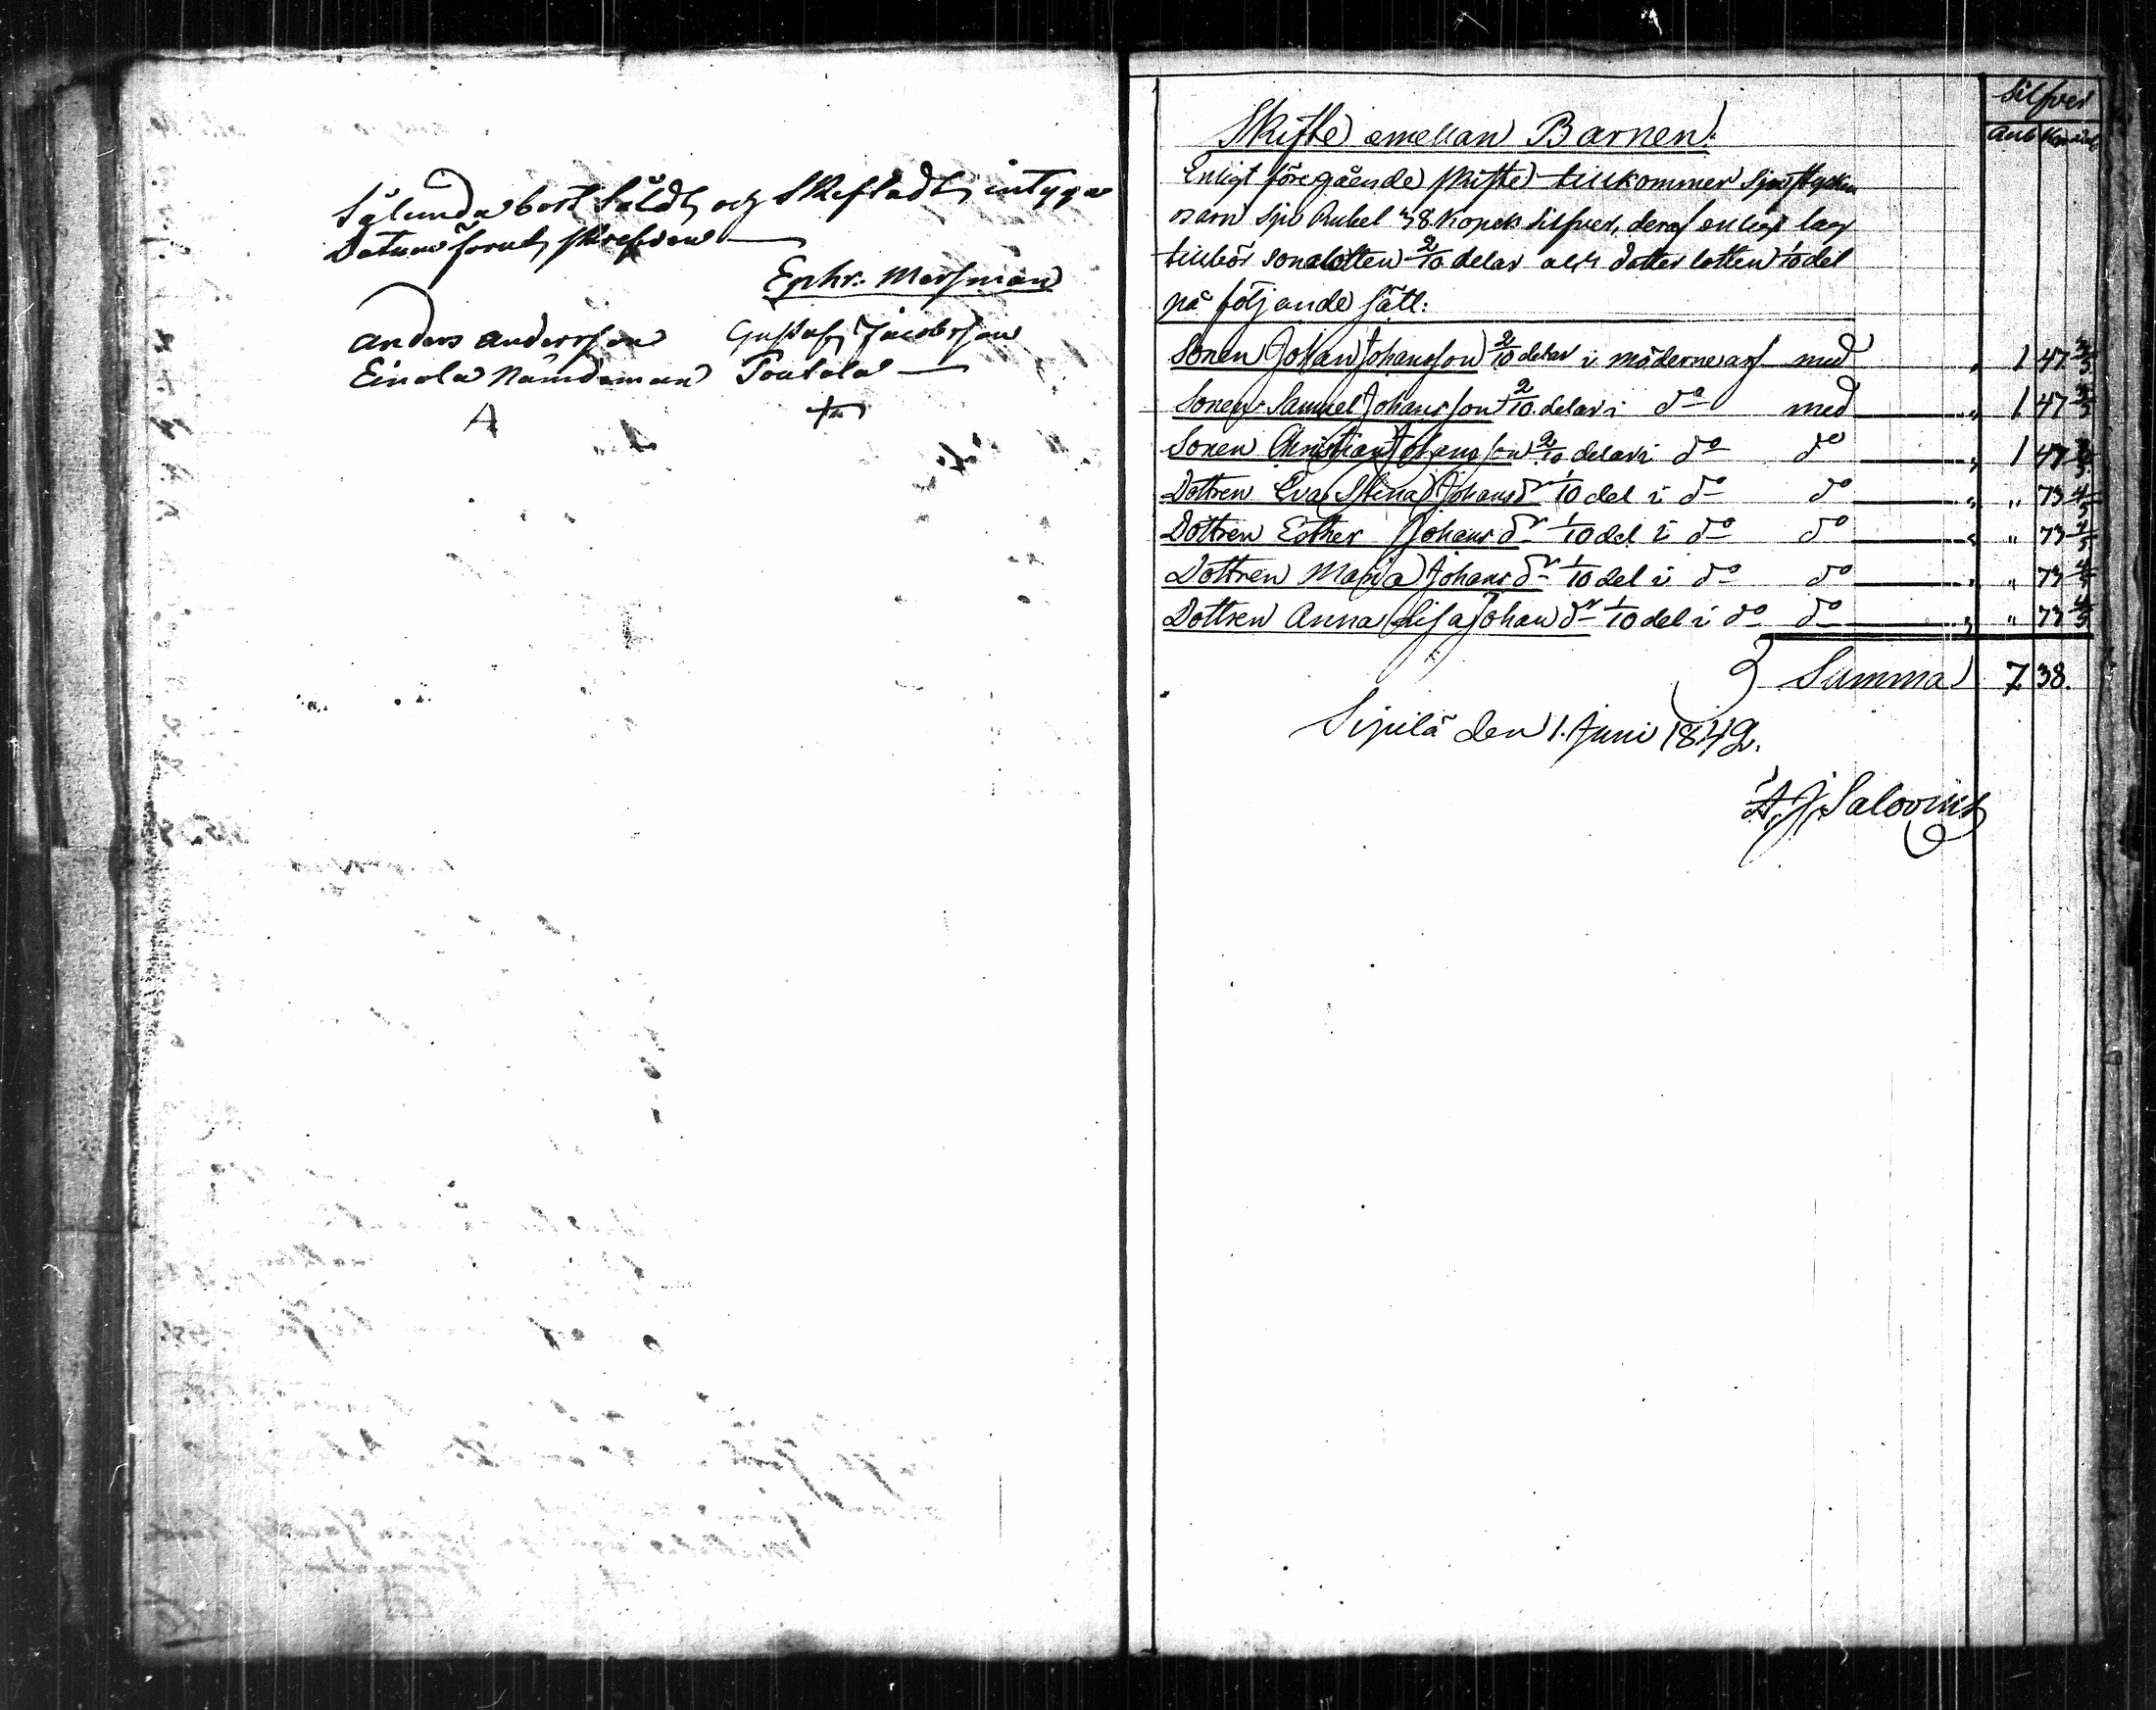 Sålunda bort såldt och Skiftadt, intyga
Datum förut skrefven
Ephr. Massman
Anders Andersson Gustaf Jacobsson
Einola Nämndeman Toukola
A
Silfver
Rub Kopeck
Skifte emellan Barnen.
Enligt föregående skifte tillkommer Sju stycken
barn Sju Rubel 38 Kopek Silfver, deraf enligt lag
tillhör sonalotten 2/10 delar och dotterlotten 1/10 del
på följande sätt:
Sonen Johan Johansson 2/10 delar i möderne arf med „ 1 47 3/5
Sonen Samuel Johansson 2/10 delar i do med „ 1 47 3/5
Sonen Christian Johansson 2/10 delar i do do „ 1 47 3/5
Dottren Eva Stina Johansdr 1/10 del i do do „ „ 73 4/5
Dottren Esther Johansdr 1/10 del i do do „ „ 73 4/5
Dottren Maria Johansdr 1/10 del i do do „ „ 73 4/5
Dottren Anna Lisa Johandr 1/10 del i do do „ „ 73 4/5
Summa 7 38.
Sipilä den 1. Juni 1842.
A. J. Salovius